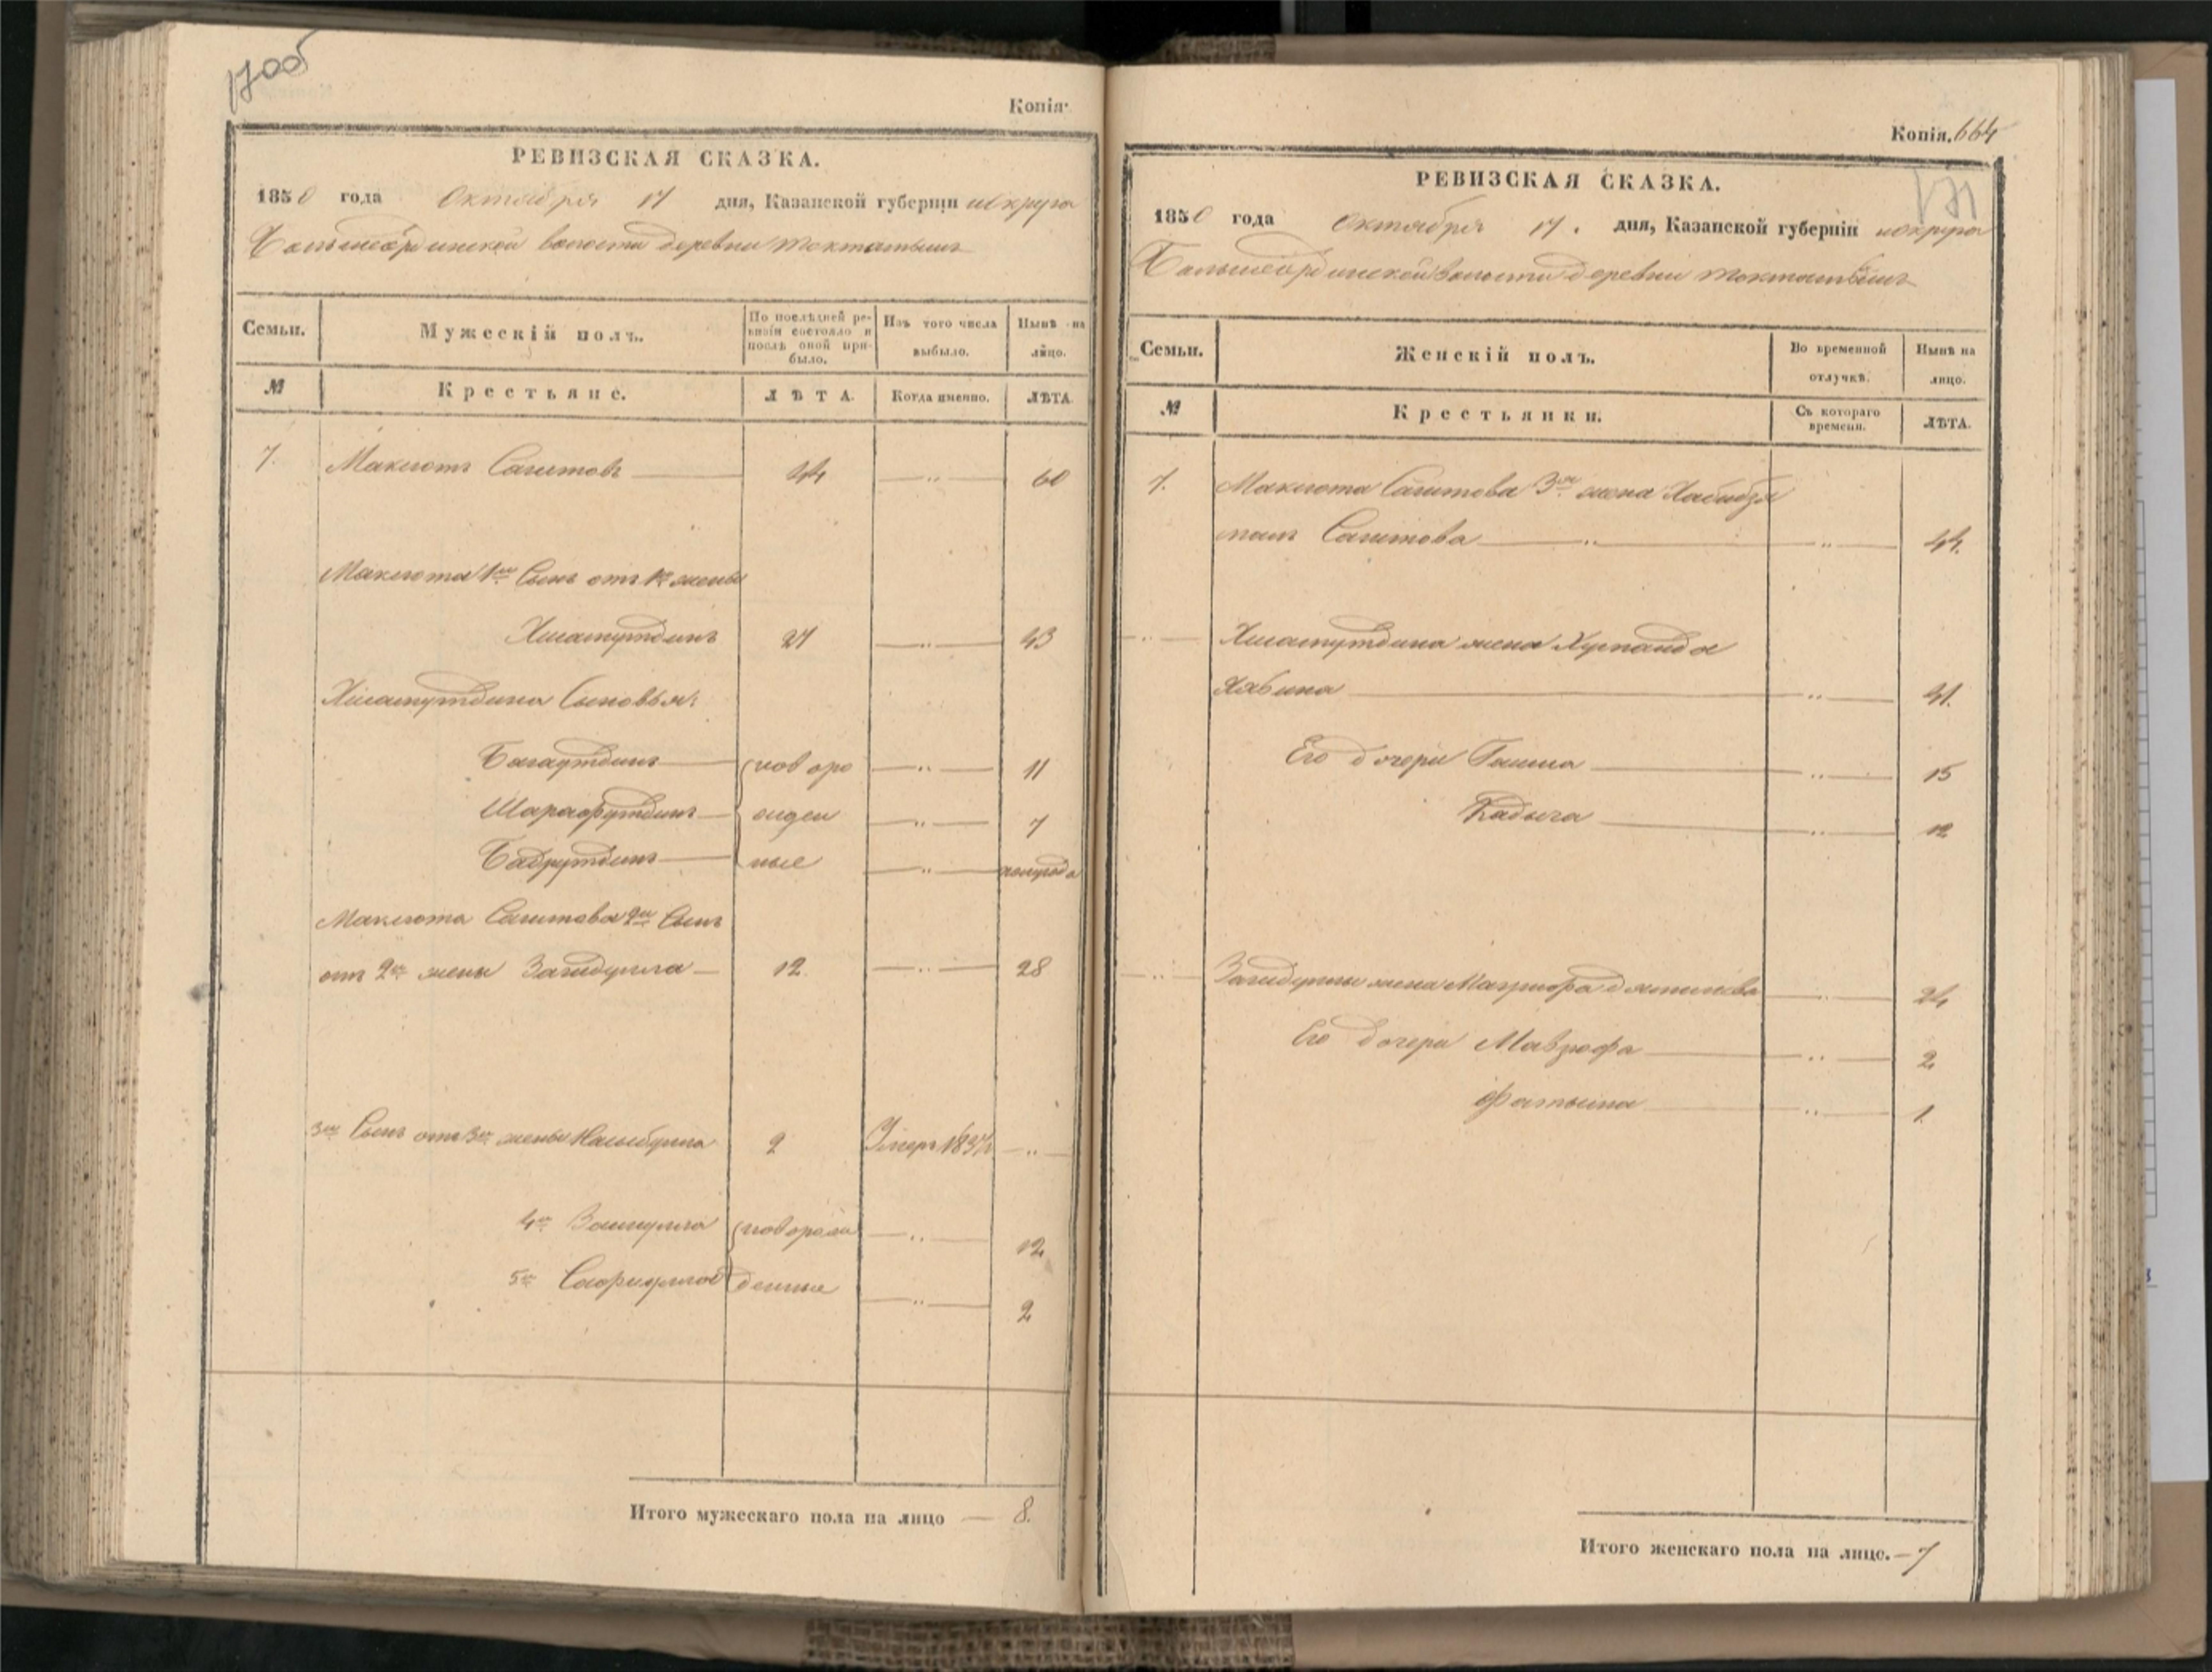 170об
Копія.
РЕВИЗСКАЯ СКАЗКА.
1850 года Октября 17 дня, Казанской губерніи округа
Большеординской волости деревни Тохтамышъ
Семьи. Мужескій полъ. По послѣдней ревизіи состояло и послѣ оной прибыло. Изъ того числа выбыло. Нынѣ на лицо.
№ Крестьяне. ЛѢТА. Когда именно. ЛѢТА.
7. Максютъ Сагитовъ 44 — 60
Максюта 1й Сынъ отъ 1й жены
Хисамутдинъ 27 — 43
Хисамутдина Сыновья:
Багаутдинъ новоро — 11
Шарафутдинъ жден — 7
Бадрутдинъ ные — полугода
Максюта Сагитова 2й Сынъ
отъ 2й жены Загидулла 12 — 28
3й Сынъ отъ 3й жены 2 Умеръ —
4й новорож — 12
5й Сафиулла денные — 2
Итого мужескаго пола на лицо — 8.
Копія. 664
171
РЕВИЗСКАЯ СКАЗКА.
1850 года Октября 17. дня, Казанской губерніи округа
Большеординской волости деревни Тохтамышъ
Семьи. Женскій полъ. Во временной отлучкѣ. Нынѣ на лицо.
№ Крестьянки. Съ котораго времени. ЛѢТА.
7. Максюта Сагитова 3я жена
Сагитова — 44.
Хисамутдина жена
— 41.
Его дочери — 15
Кадыча — 12
Загидуллы жена — 24
Его дочери — 2
Фатыма — 1.
Итого женскаго пола на лицо. — 7